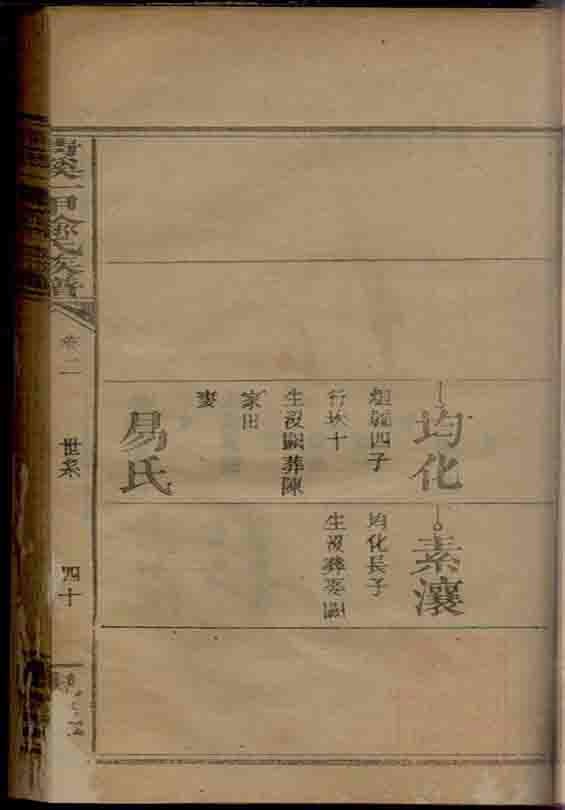 均化
四子
行坎十
生歿闕葬陳
家田
妻
易氏
素瀼
均化長子
生歿葬娶闕
族譜
卷二
世系
四十